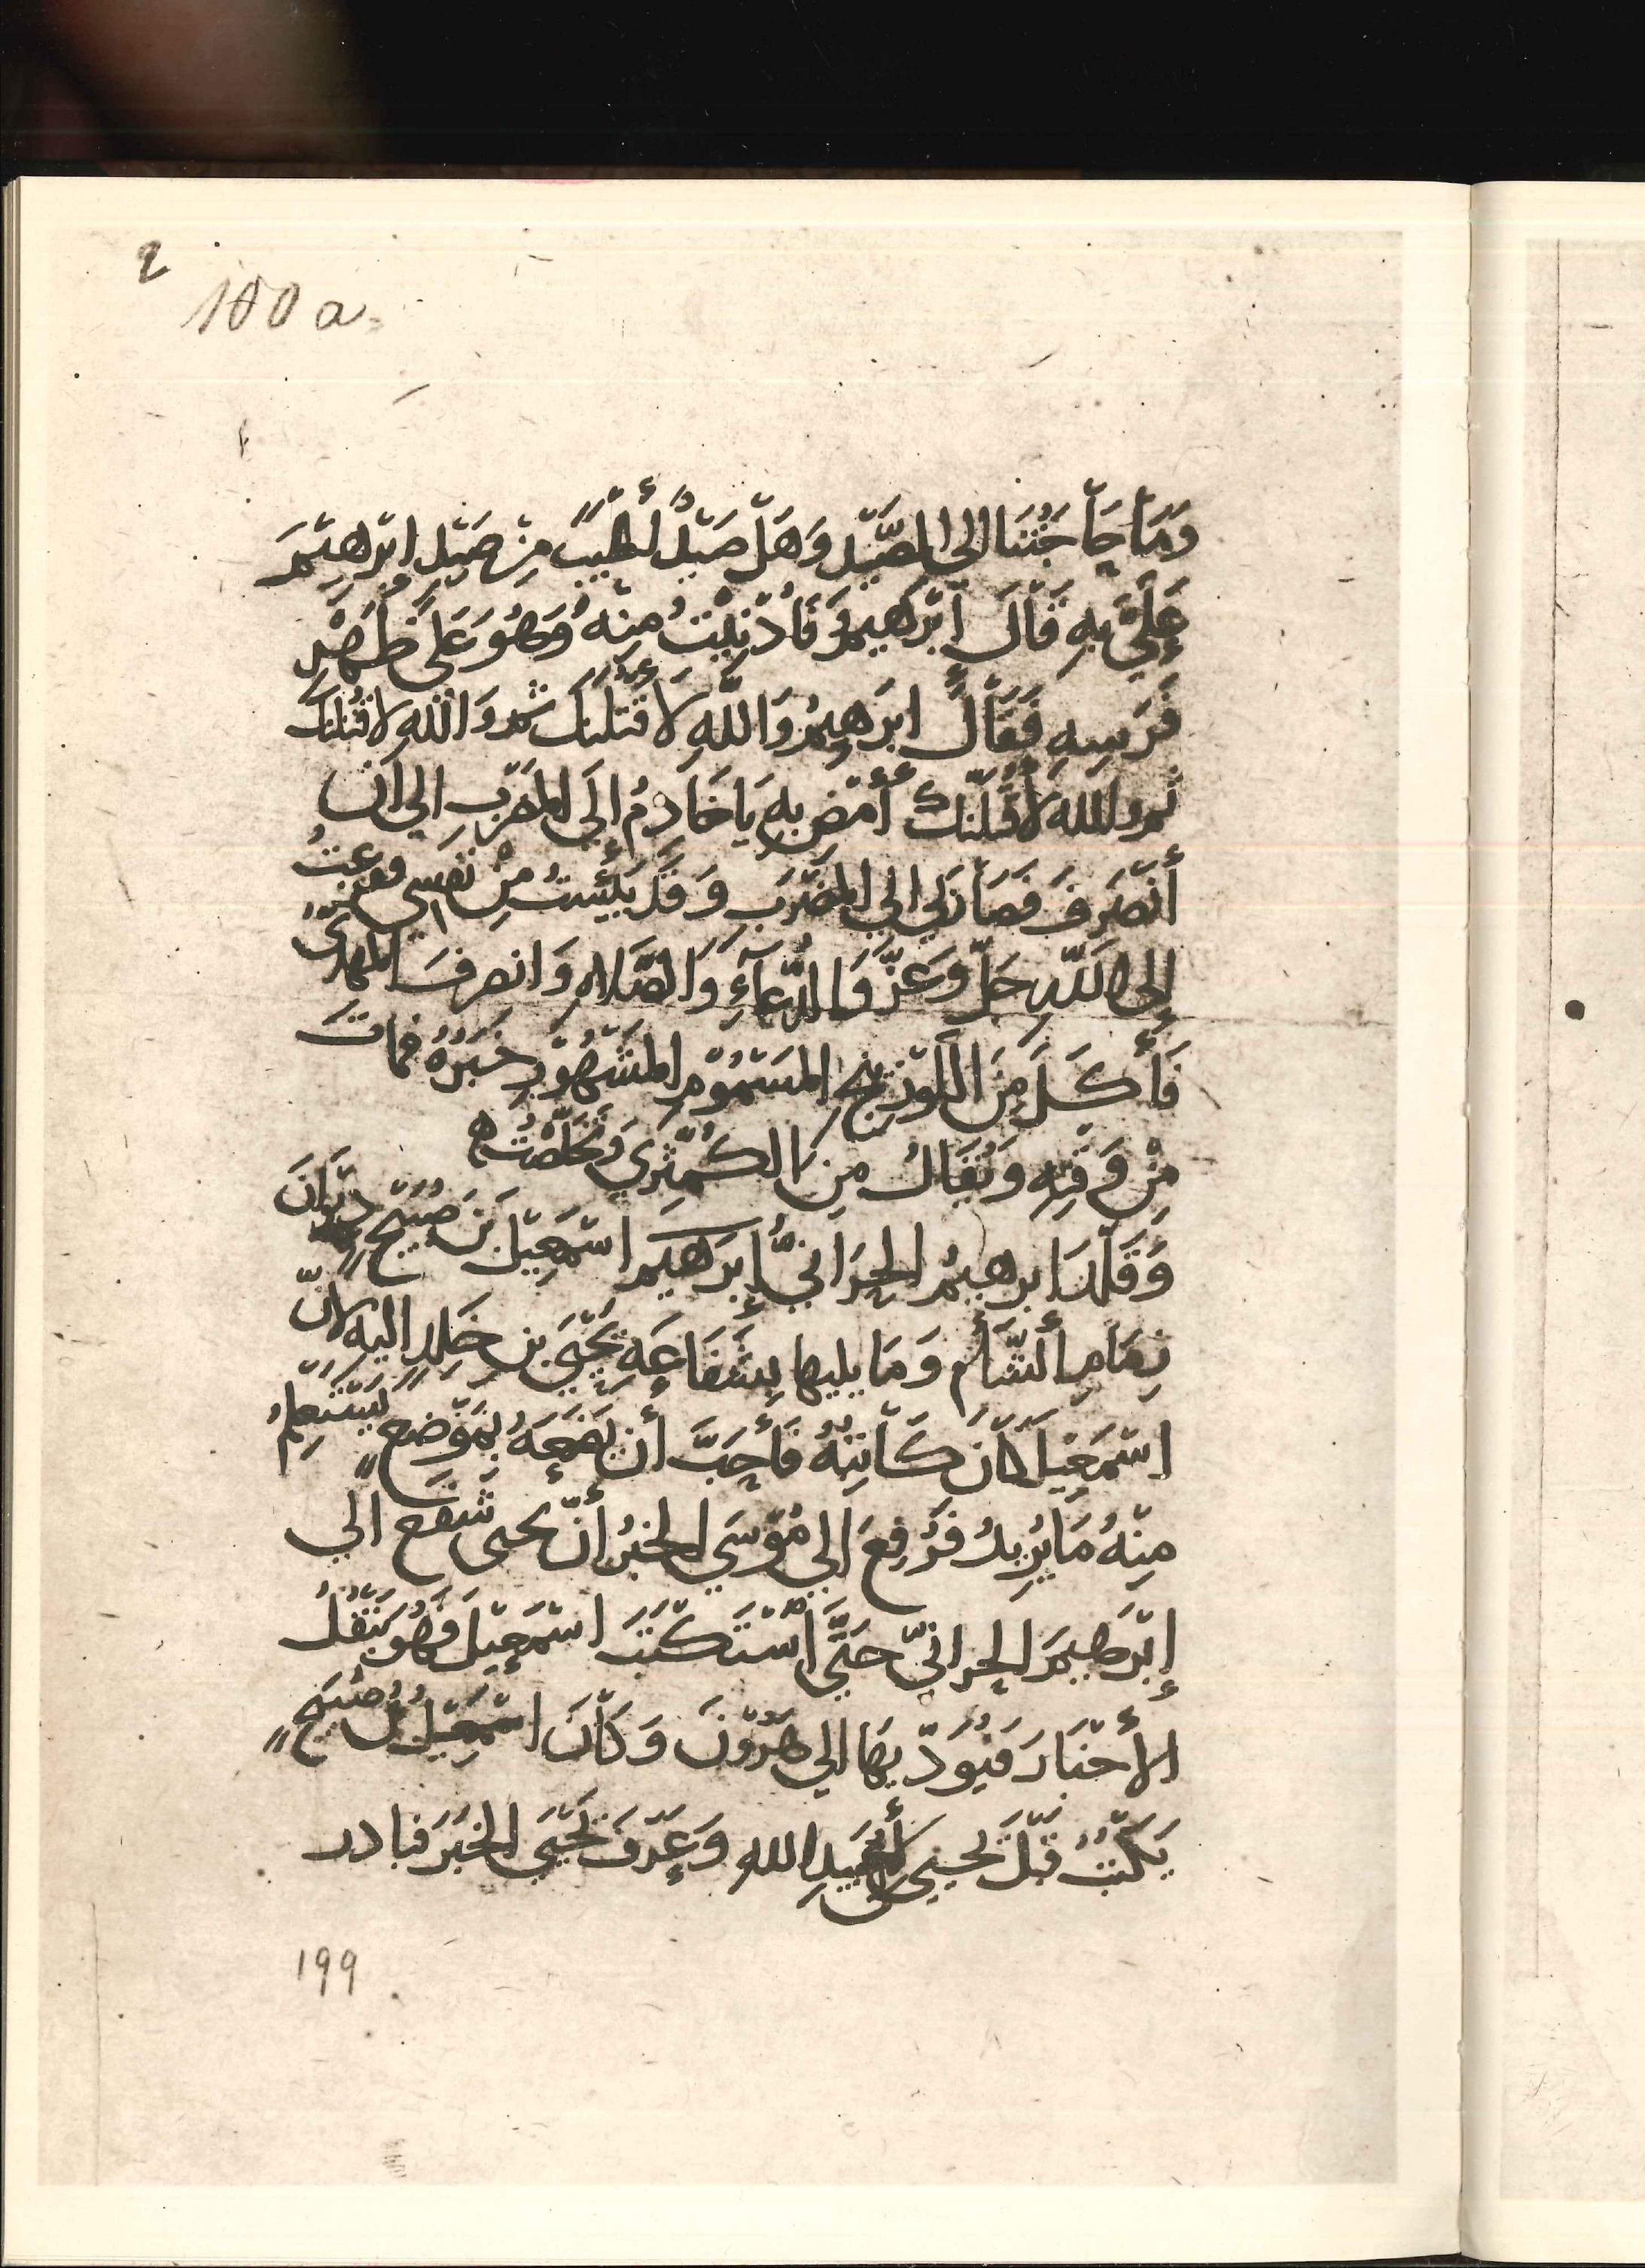 2
100 a.
وَمَا حَاجَتُنَا الى الصَّيْدِ وَهَلْ صَيْدٌ أَطْيَبُ مِنْ صَيْدِ ابْرٰهِيْمَ
عَلَيَّ بِهِ قَالَ ابْرَهِيمُ فَأُدْنِيْتُ مِنْهُ وَهُوَ عَلَى ظَهْرِ
فَرَسِهِ فَقَالَ ابرَهِيمُ وَاللّهِ لَأَقْتُلَنَّكَ ثم وَاللهِ لاقتُلنكَ
ثم والله لَأَقْتُلَنَّكَ أُمْضِ بِهِ يَا خَادِمُ الَى المَضْرَبِ الى أن
أَنْصَرِفَ فَصَارَ بى الى المَضْرَبِ وَقَدْ يَئِسْتُ مِنْ نَفْسِي ففزعتُ
إلى اللهِ جَلَّ وَعَزَّ بِالدُّعَآءِ وَالصَّلاهِ وَانصرفَ المهدىُّ
فَأَكَلَ مِنَ اللَّوْزِينَجِ المَسْمُوْمِ المَشْهُوْرِ خَبَرُهُ فماتَ
مِنْ وَقْتِهِ وَيُقَالُ مِنَ الكُمَّثْرَي وَتَخَلَّصْتُ ه
وَقَلَّدَ ابرهيمُ الحَرَّانيُّ إبرَهيم اسْمَعِيْلَ بنَ صُبَيْحٍ دِيْوَانَ
زِمَامِ الشَّأم وَمَا يليها بِشَفَاعَهِ يَحْيَى بن خَلِدٍ اليه لانّ
اسْمَعِيْلَ كَانَ كَاتِبَهُ فَأَحَبَّ أن يَضَعَهُ بِمَوْضِعٍ يَسْتَعْلِمُ
مِنْهُ مَا يُرِيدُ فَرُفِعَ الى مُوْسَي الخبرُ أنّ يحيى شَفَعَ الى
إبْرَهِيمَ الحرانيّ حَتَّى اسْتَكْتَبَ اسْمَعِيْلَ فَهُوَ يَنْقُلُ
الأَخْبَارَ فيُؤَدِّيهَا الى هَرُوْنَ وَكَانَ اسْمَعِيْلُ بْنُ صُبَيْحٍ
يَكْتُبُ قَبْلَ يَحيى لأَبِي عُبَيْدِ اللهِ وَعَرَفَ يَحْيَى الخَبَرَ فبادر
199